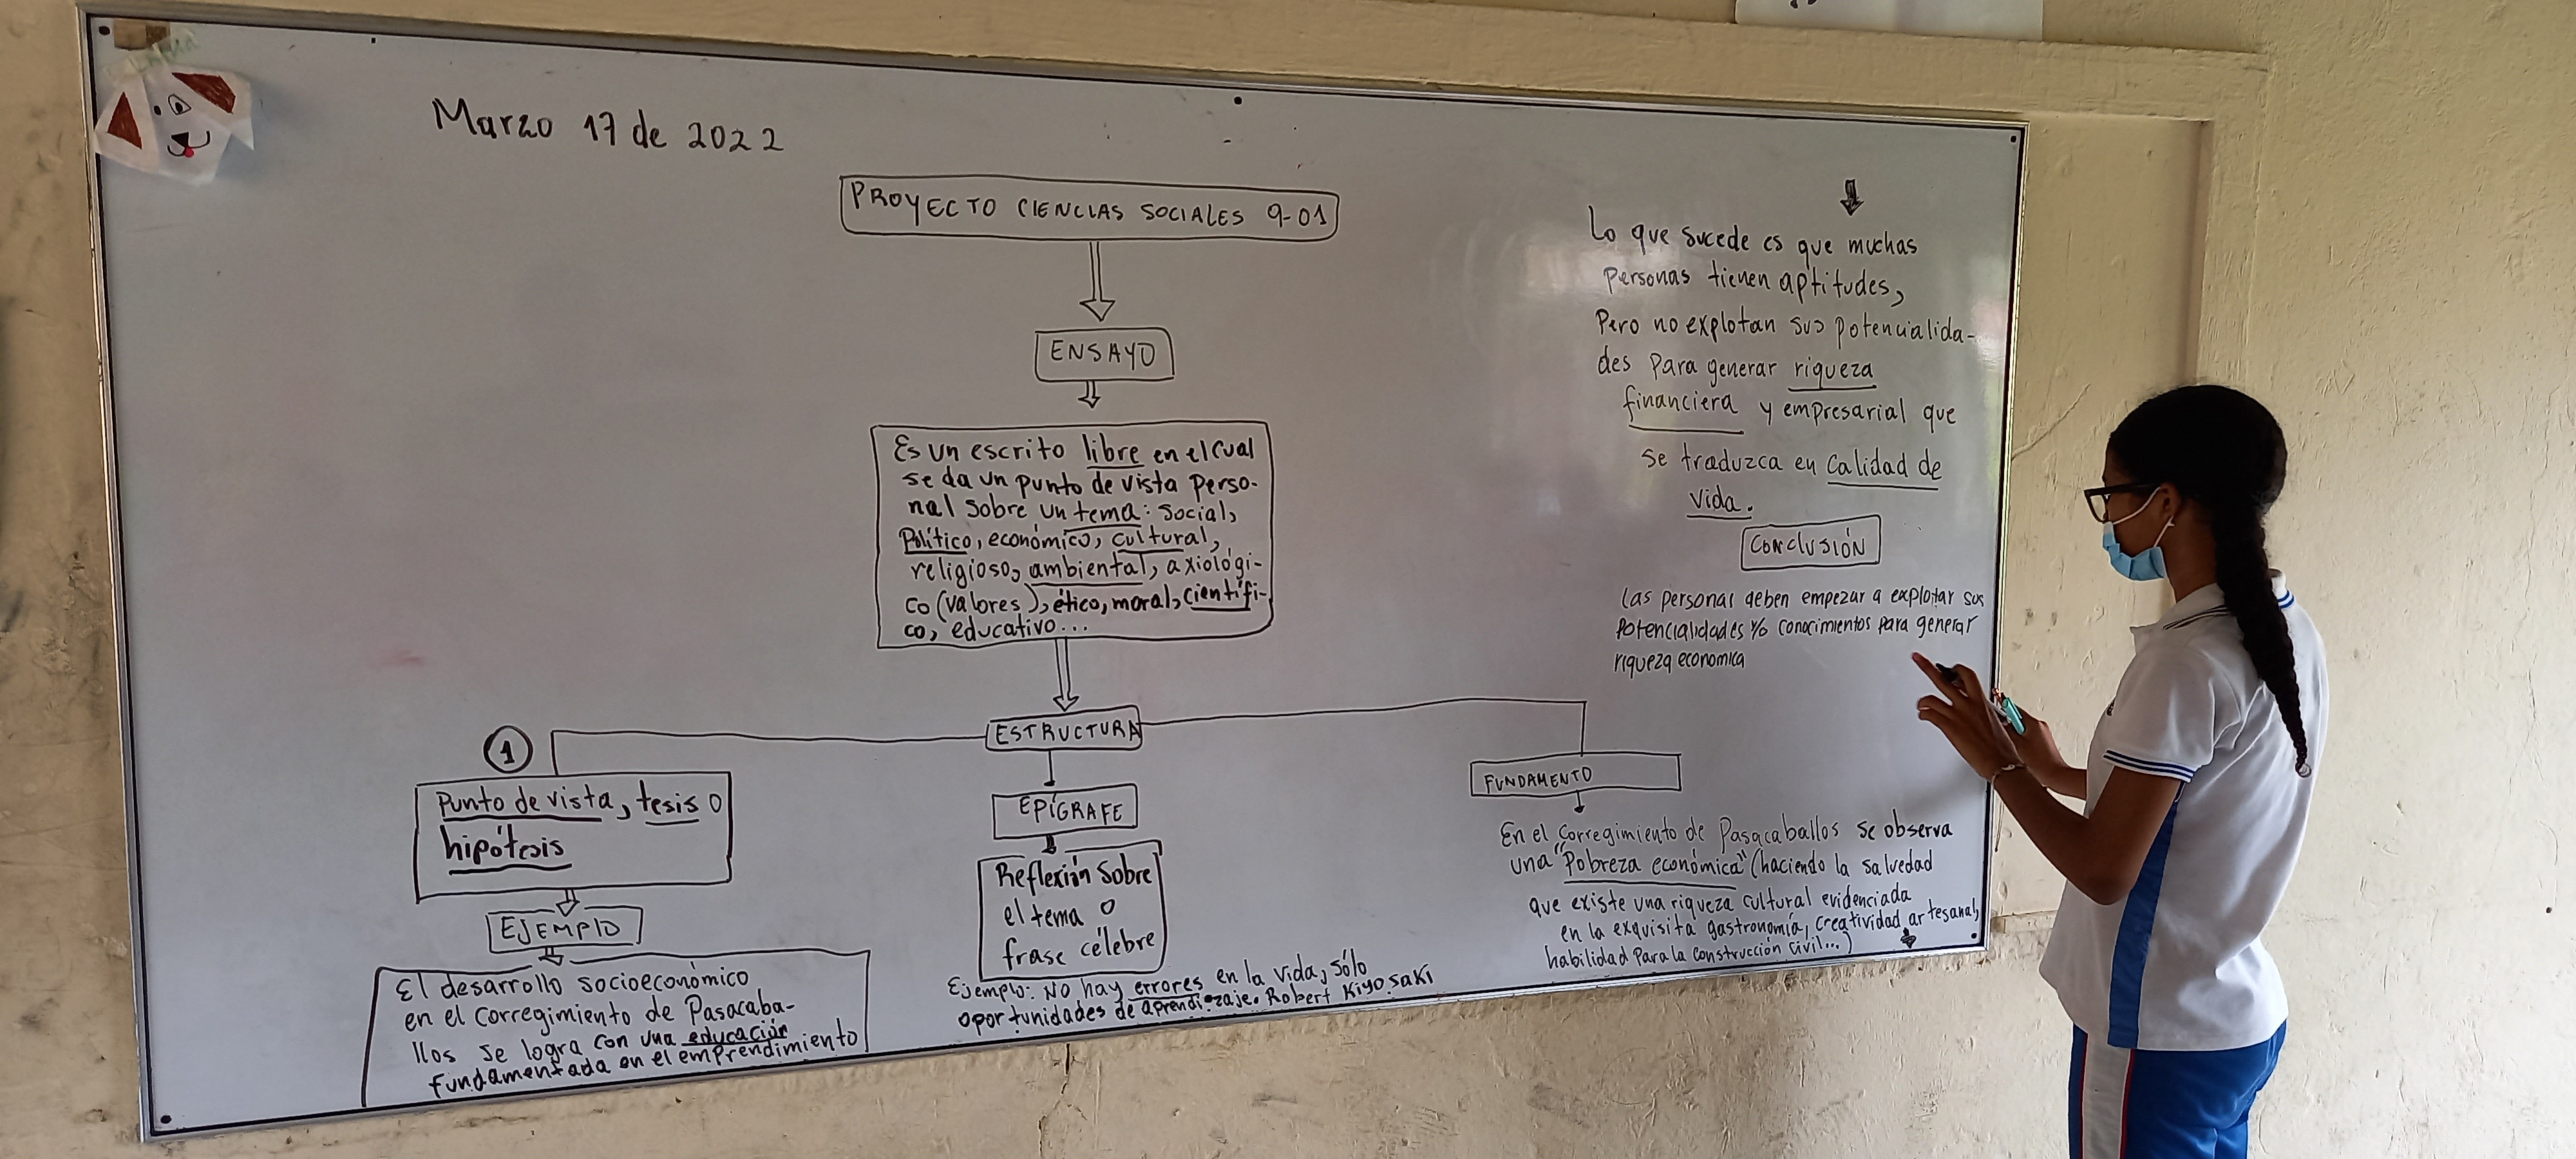 Marzo 17 de 2022
PROYECTO CIENCIAS SOCIALES 9-01
ENSAYO
Es un escrito libre en el cual
se da un punto de vista perso-
nal sobre un tema: social,
Político, económico, cultural,
religioso, ambiental, axiológi-
co (valores), ético, moral, científi-
co, educativo...
ESTRUCTURA
1
Punto de vista, tesis o
hipótesis
EJEMPLO
El desarrollo socioeconómico
en el corregimiento de Pasacaba-
llos se logra con una educación
fundamentada en el emprendimiento
EPÍGRAFE
Reflexión sobre
el tema o
frase célebre
Ejemplo: No hay errores en la vida, sólo
oportunidades de aprendizaje. Robert Kiyosaki
FUNDAMENTO
En el corregimiento de Pasacaballos se observa
una "Pobreza económica" (haciendo la salvedad
que existe una riqueza cultural evidenciada
en la exquisita gastronomía, creatividad artesanal,
habilidad para la construcción civil...)
Lo que sucede es que muchas
personas tienen aptitudes,
Pero no explotan sus potencialida-
des para generar riqueza
financiera y empresarial que
se traduzca en calidad de
vida.
CONCLUSIÓN
Las personas deben empezar a explotar sus
potencialidades y/o conocimientos para generar
riqueza economica